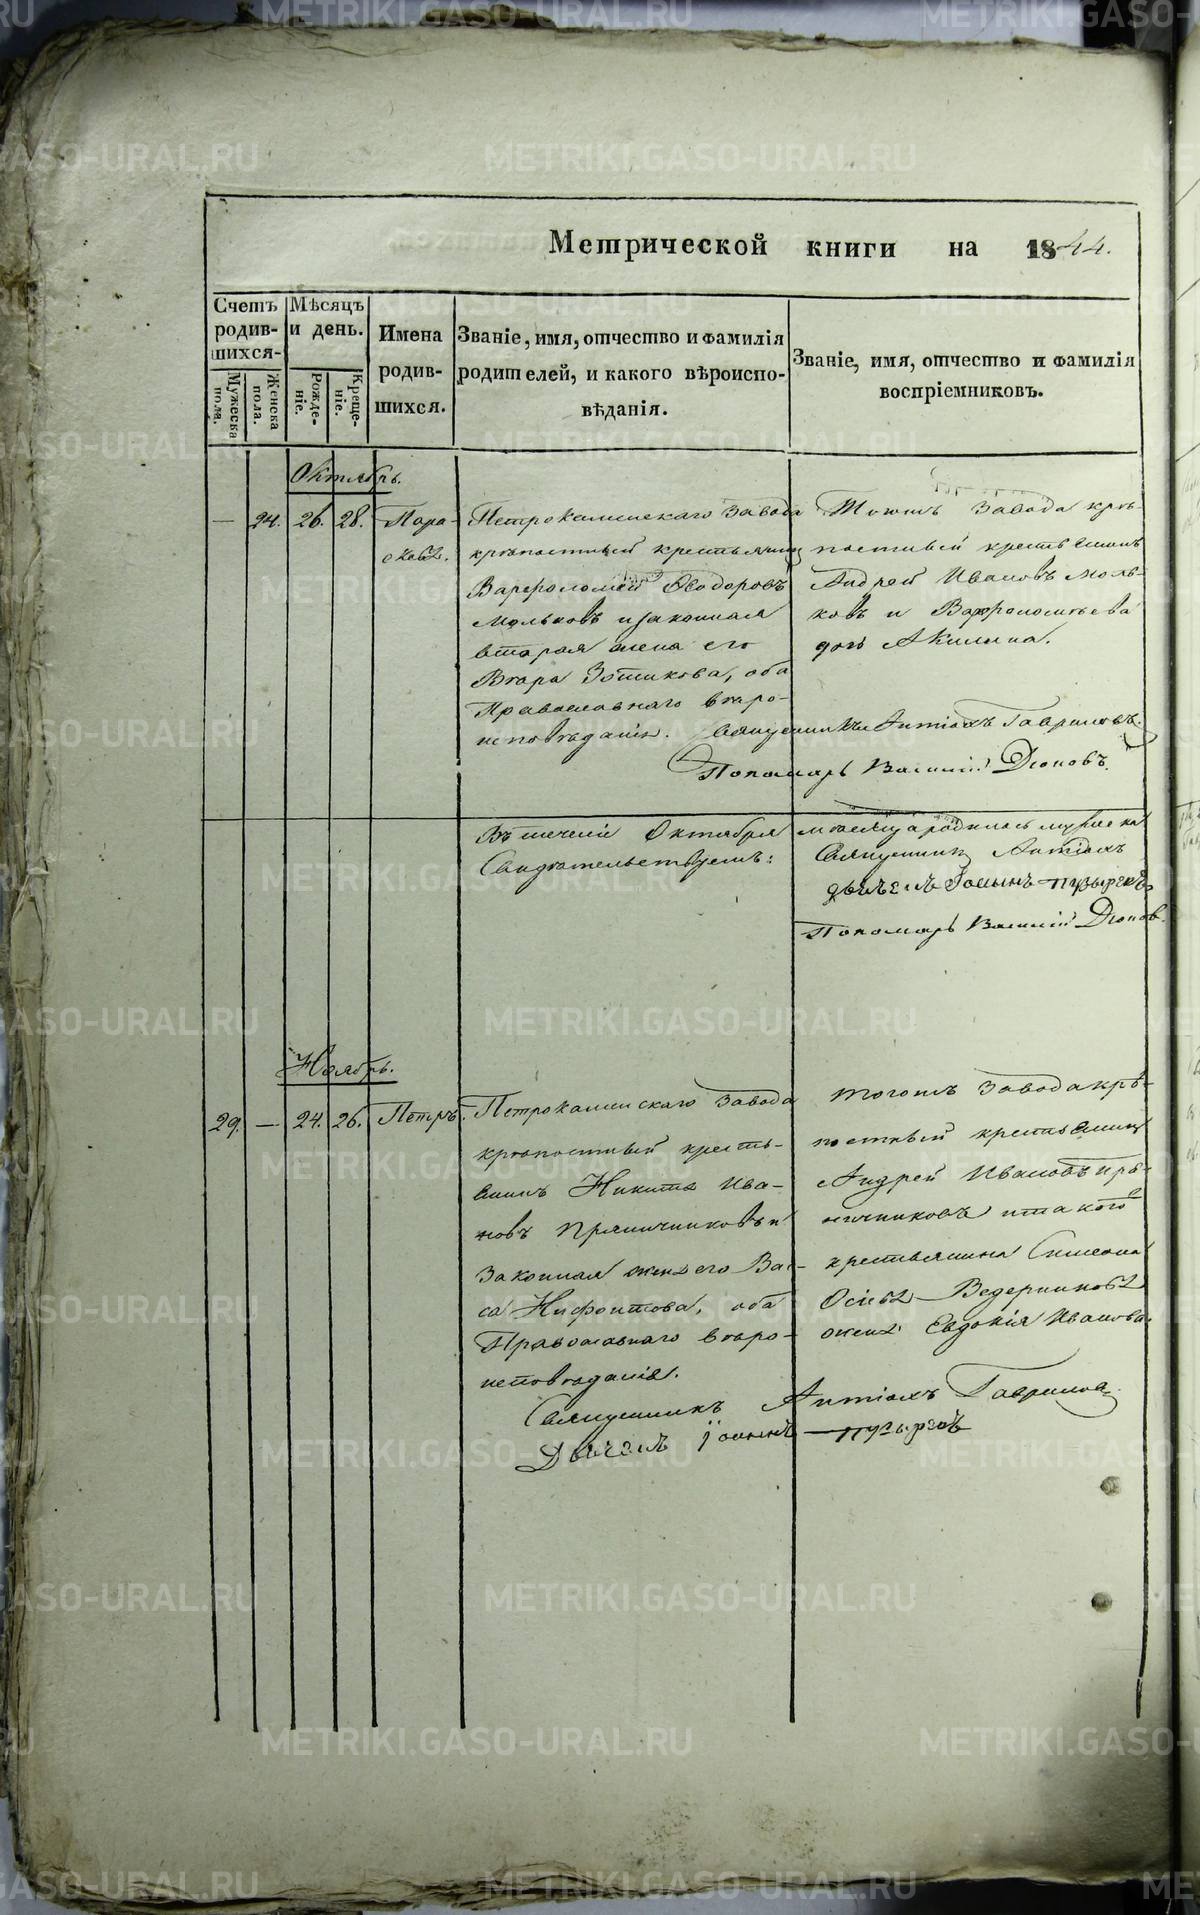 Метрической книги на 1844.
Счетъ родив-шихся
Мужеска пола.
Женска пола.
Мѣсяцъ и день.
Рожде-ніе.
Креще-ніе.
Имена родив-шихся.
Званіе, имя, отчество и фамилія
родителей, и какого вѣроиспо-
вѣданія.
Званіе, имя, отчество и фамилія
воспріемниковъ.
Октябрь.
— 24. 26. 28. Пара-
скева.
Петрокаменскаго завода
крѣпостный крестьянинъ
Варфоломей Ѳеодоровъ
Мольковъ и законная
вторая жена его
Вѣра Зотикова, оба
Православнаго вѣро-
исповѣданія.
Тогожъ завода крѣ-
постный крестьянинъ
Андрей Ивановъ Моль-
ковъ и Варфоломѣева
дочь Акилина.
Священникъ Антіохъ Гавриловъ.
Пономарь Василій Дюковъ.
Въ теченіи Октября
Свидѣтельствуемъ:
мѣсяца родилось мужеска
Священникъ Антіохъ
Дьячекъ Іоаннъ Пузыревъ
Пономарь Василій Дюков.
Ноябрь.
29. — 24. 26. Петръ.
Петрокаменскаго завода
крѣпостный кресть-
янинъ Никита Ива-
новъ Пряничниковъ и
законная жена его Ва-
са Нифонтова, оба
Православнаго вѣро-
исповѣданія.
Тогожъ завода крѣ-
постный крестьянинъ
Андрей Ивановъ Пря-
ничниковъ и такого
крестьянина Симеона
Осіева Ведерникова
жена Евдокія Иванова.
Священникъ Антіохъ Гаврилов
Дьячекъ Іоаннъ Пузыревъ
METRIKI.GASO-URAL.RU